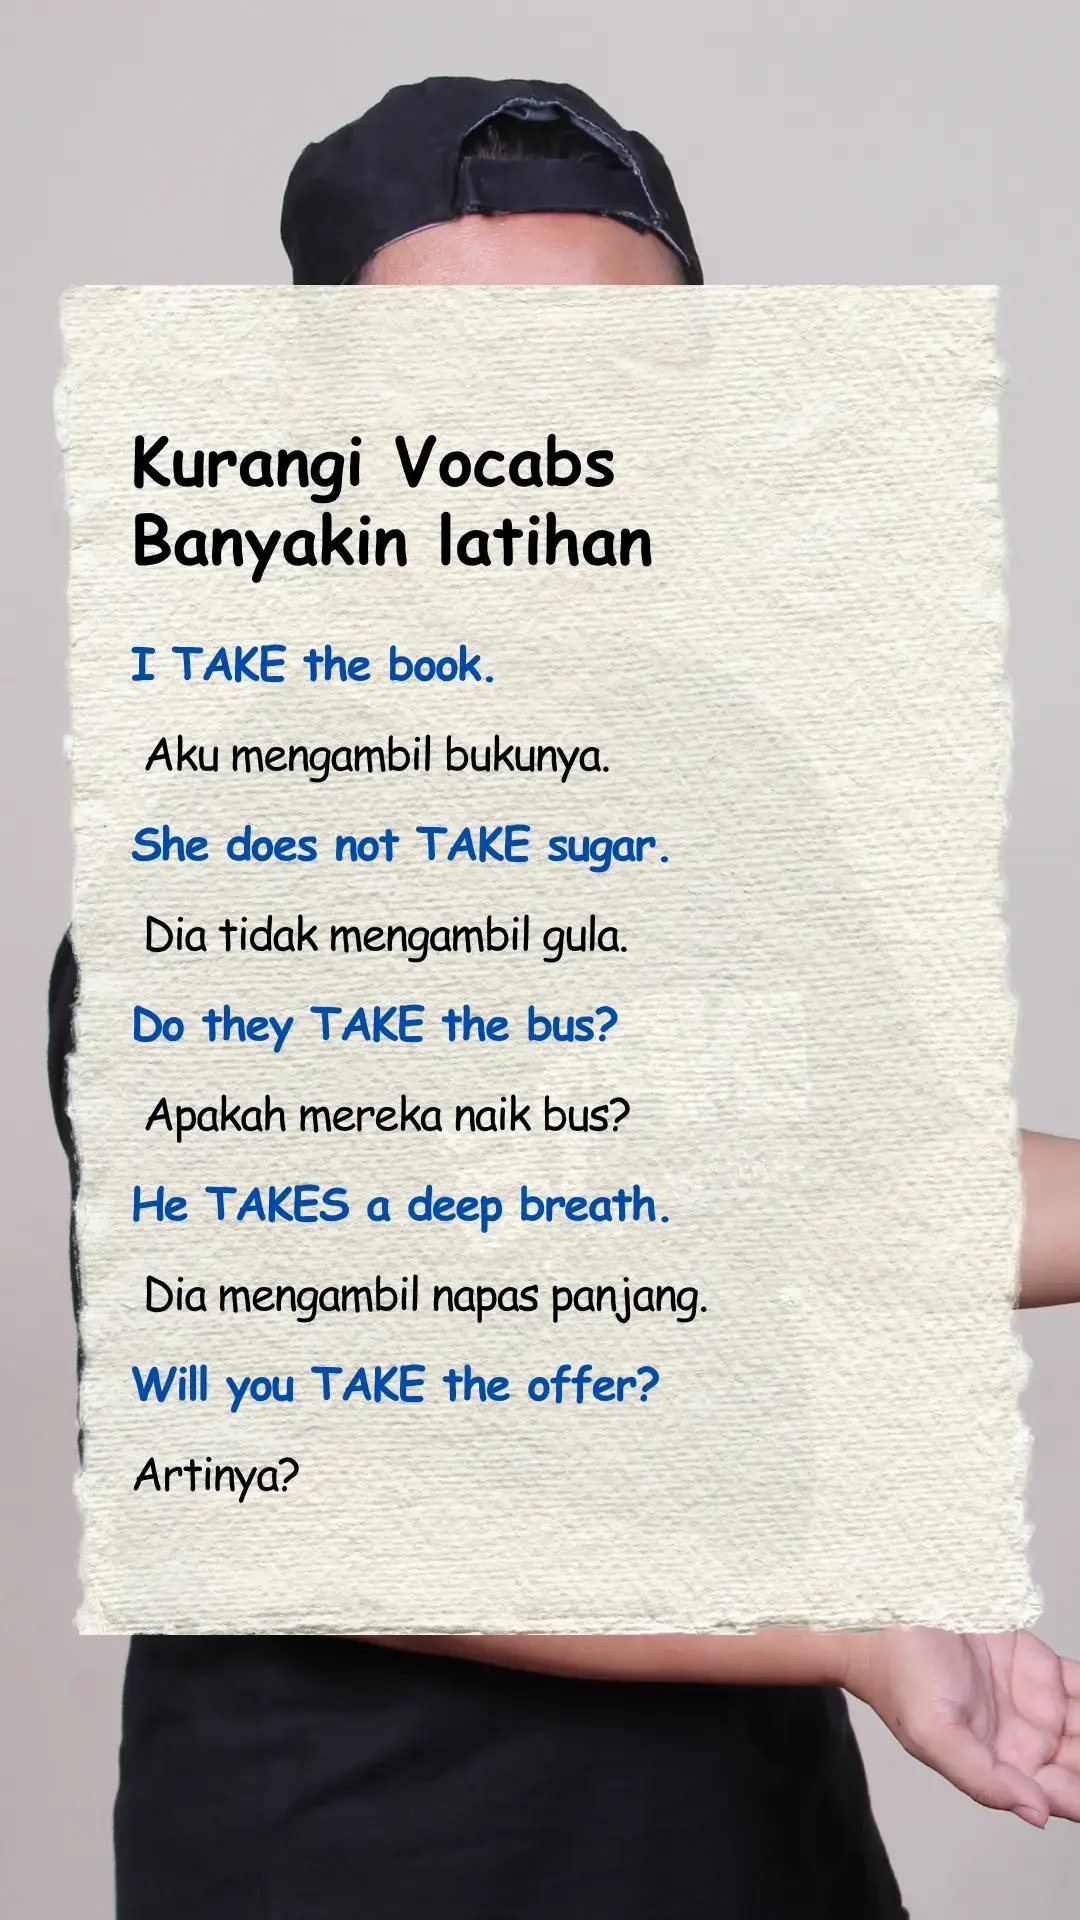 Kurangi Vocabs
Banyakin latihan
I TAKE the book.
Aku mengambil bukunya.
She does not TAKE sugar.
Dia tidak mengambil gula.
Do they TAKE the bus?
Apakah mereka naik bus?
He TAKES a deep breath.
Dia mengambil napas panjang.
Will you TAKE the offer?
Artinya?